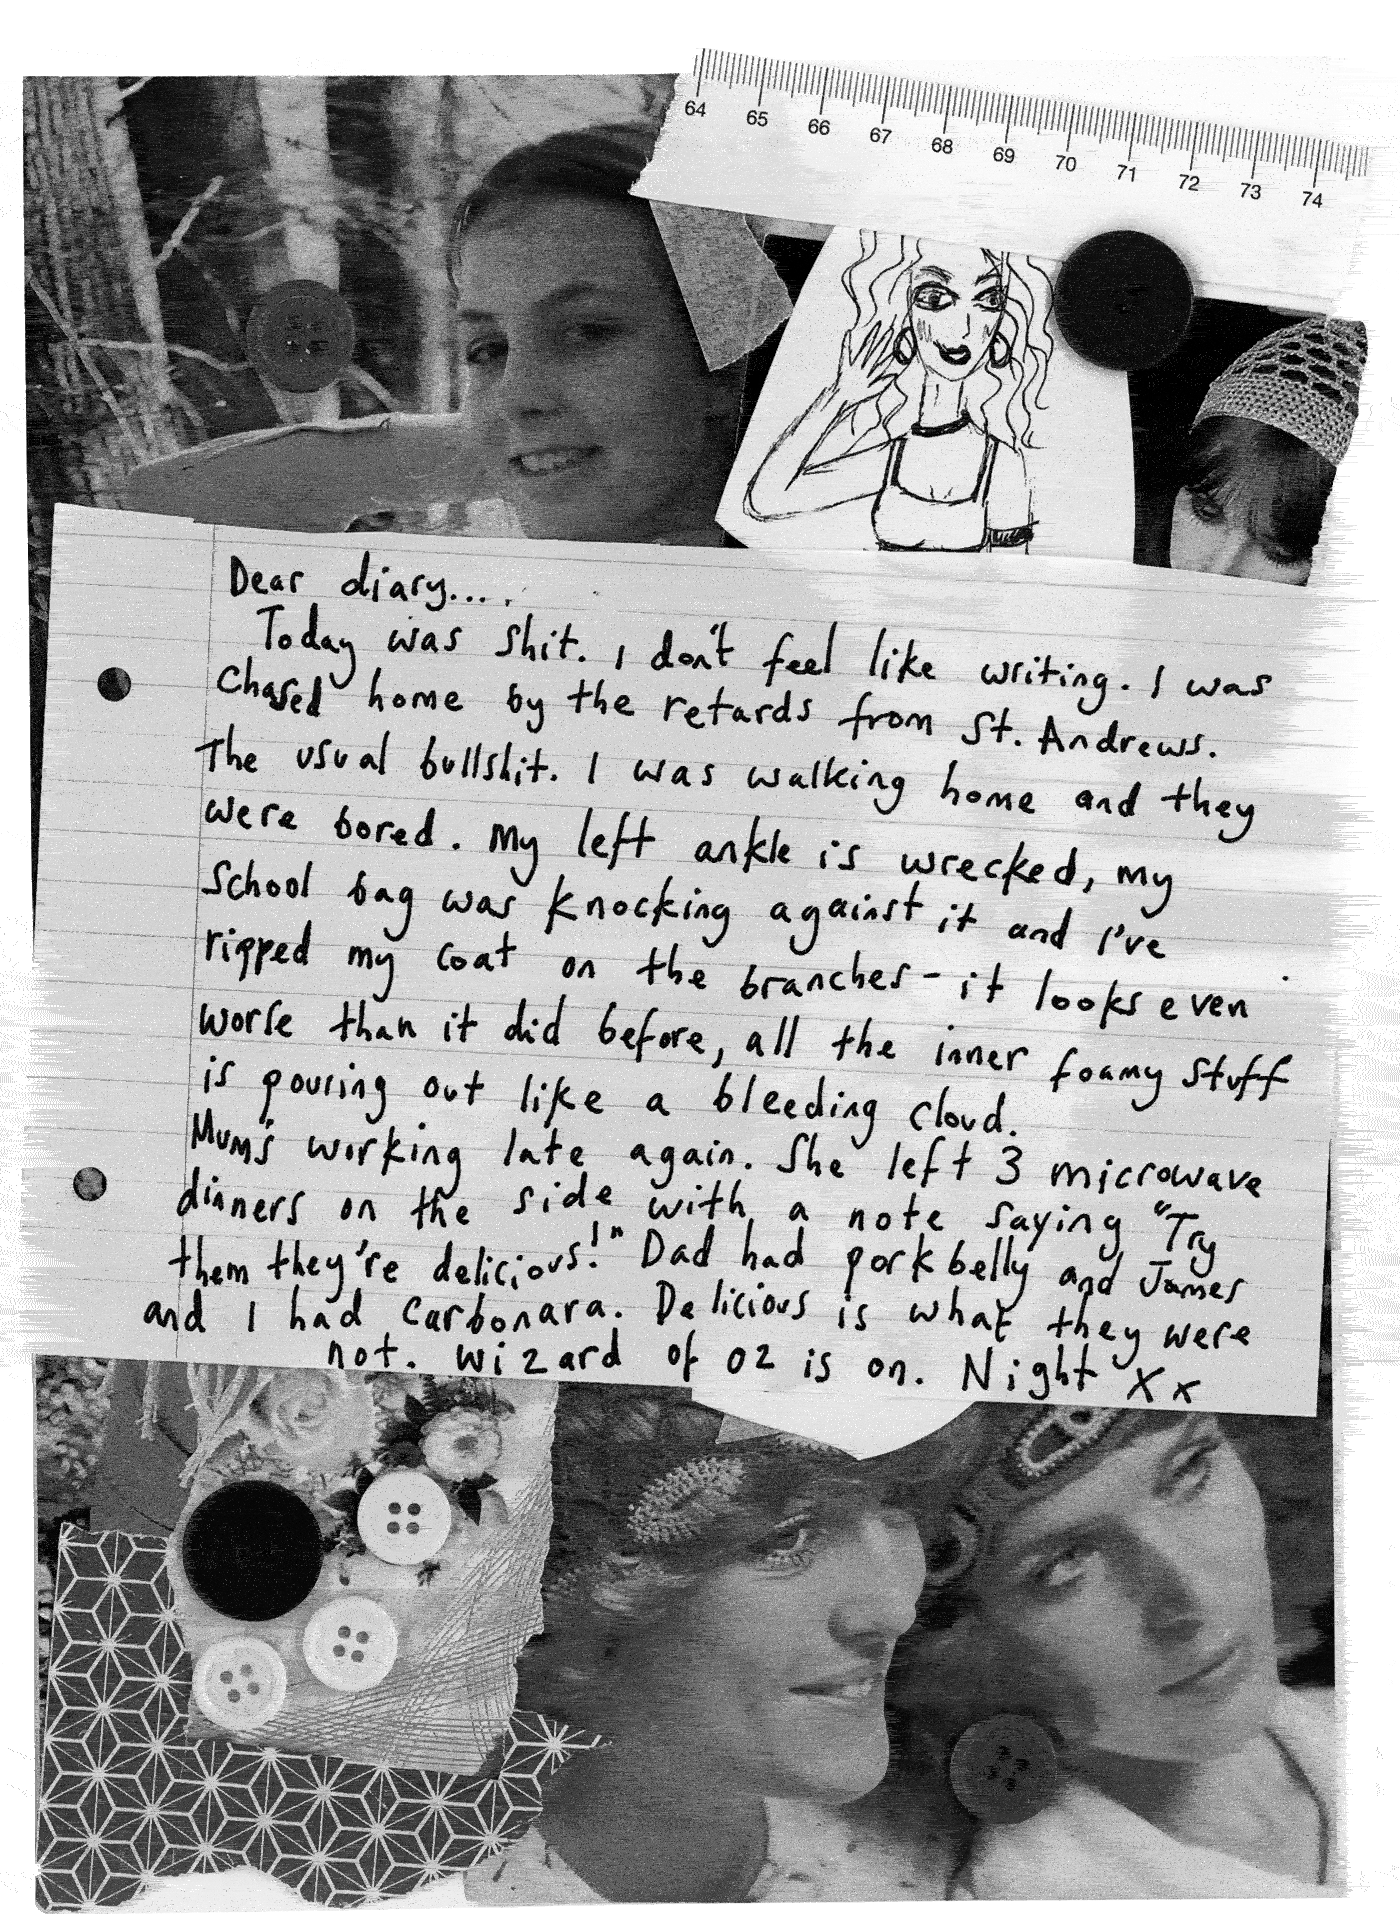 64 65 66 67 68 69 70 71 72 73 74
Dear diary....
Today was shit. I don't feel like writing. I was
chased home by the retards from St. Andrews.
The usual bullshit. I was walking home and they
were bored. My left ankle is wrecked, my
School bag was knocking against it and I've
ripped my coat on the branches - it looks even
worse than it did before, all the inner foamy stuff
is pouring out like a bleeding cloud.
Mum's working late again. She left 3 microwave
dinners on the side with a note saying "Try
them they're delicious!" Dad had pork belly and James
and I had Carbonara. Delicious is what they were
not. Wizard of Oz is on. Night Xx